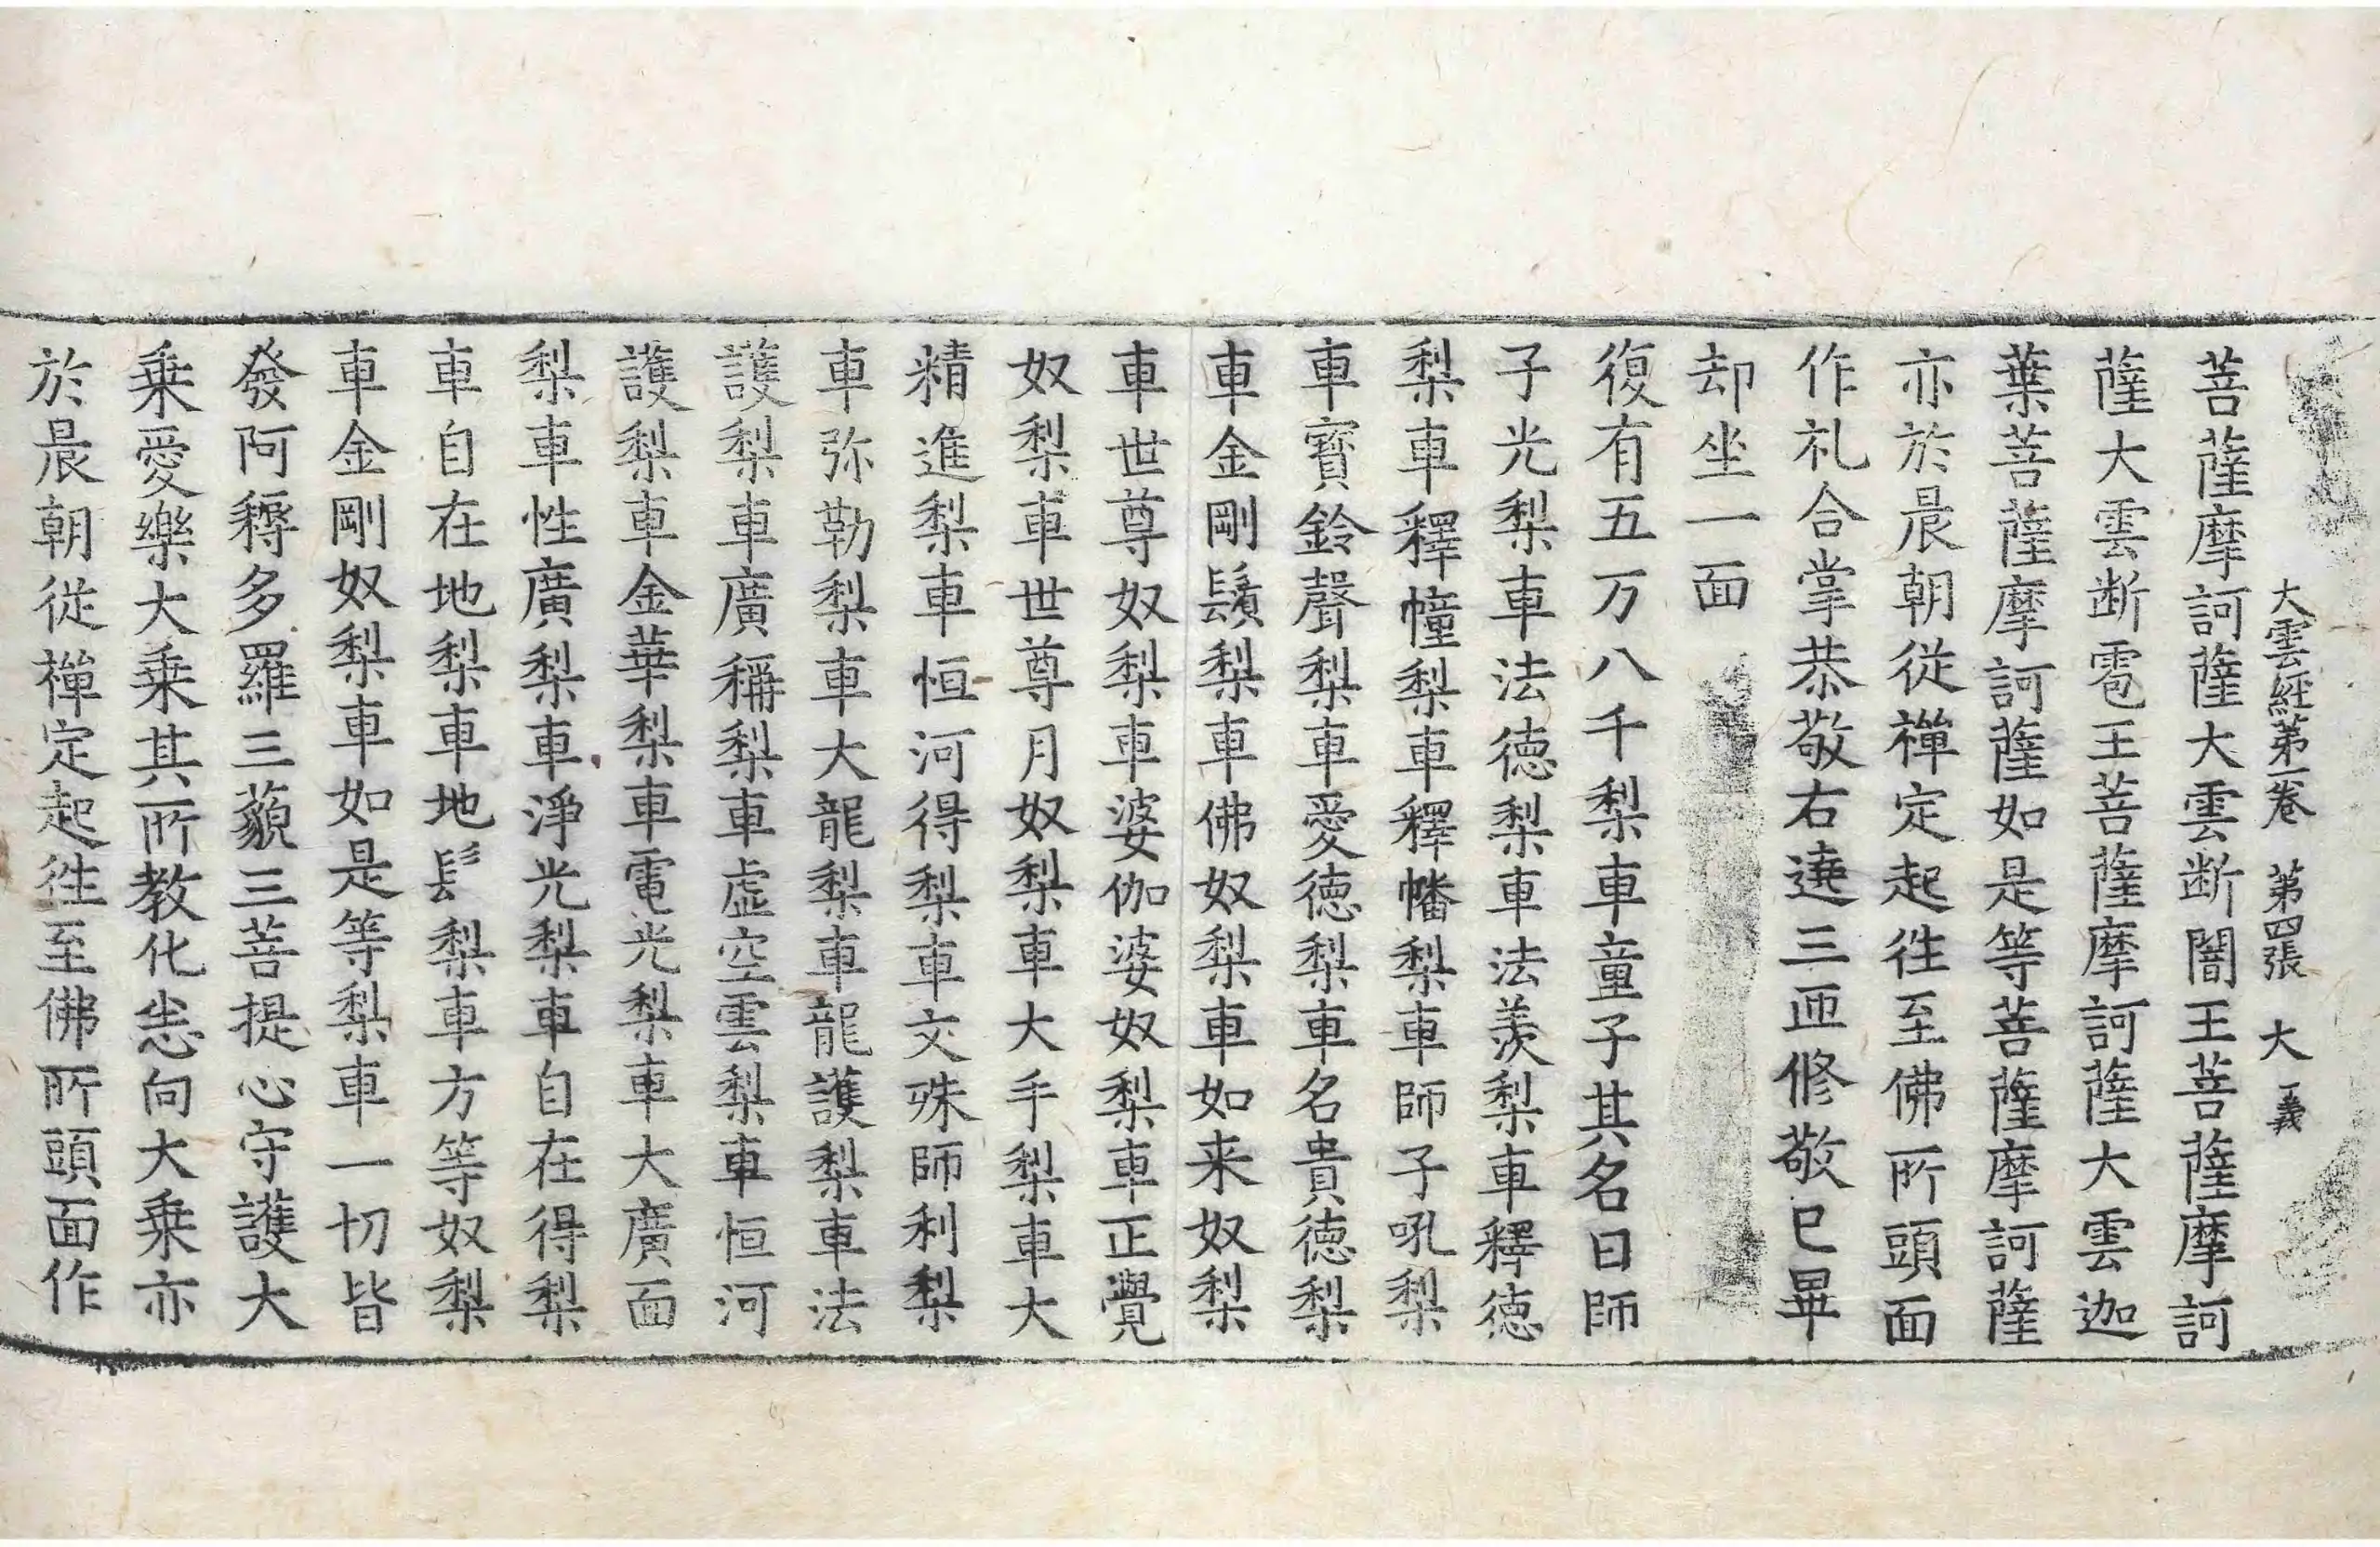 大雲經第一卷 第四張 大 義
菩薩摩訶薩大雲断闇王菩薩摩訶
薩大雲断雹王菩薩摩訶薩大雲迦
葉菩薩摩訶薩如是等菩薩摩訶薩
亦於晨朝従禪定起往至佛所頭面
作礼合掌恭敬右遶三匝修敬已畢
却坐一面
復有五万八千梨車童子其名曰師
子光梨車法德梨車法羨梨車釋德
梨車釋幢梨車釋幡梨車師子吼梨
車寳鈴聲梨車愛德梨車名貴德梨
車金剛鬚梨車佛奴梨車如来奴梨
車世尊奴梨車婆伽婆奴梨車正覺
奴梨車世尊月奴梨車大手梨車大
精進梨車恒河得梨車文殊師利梨
車弥勒梨車大龍梨車龍護梨車法
護梨車廣稱梨車虛空雲梨車恒河
護梨車金華梨車電光梨車大廣面
梨車性廣梨車淨光梨車自在得梨
車自在地梨車地髟梨車方等奴梨
車金剛奴梨車如是等梨車一切皆
發阿耨多羅三藐三菩提心守護大
乗愛樂大乗其所教化恙向大乗亦
於晨朝従禪定起往至佛所頭面作